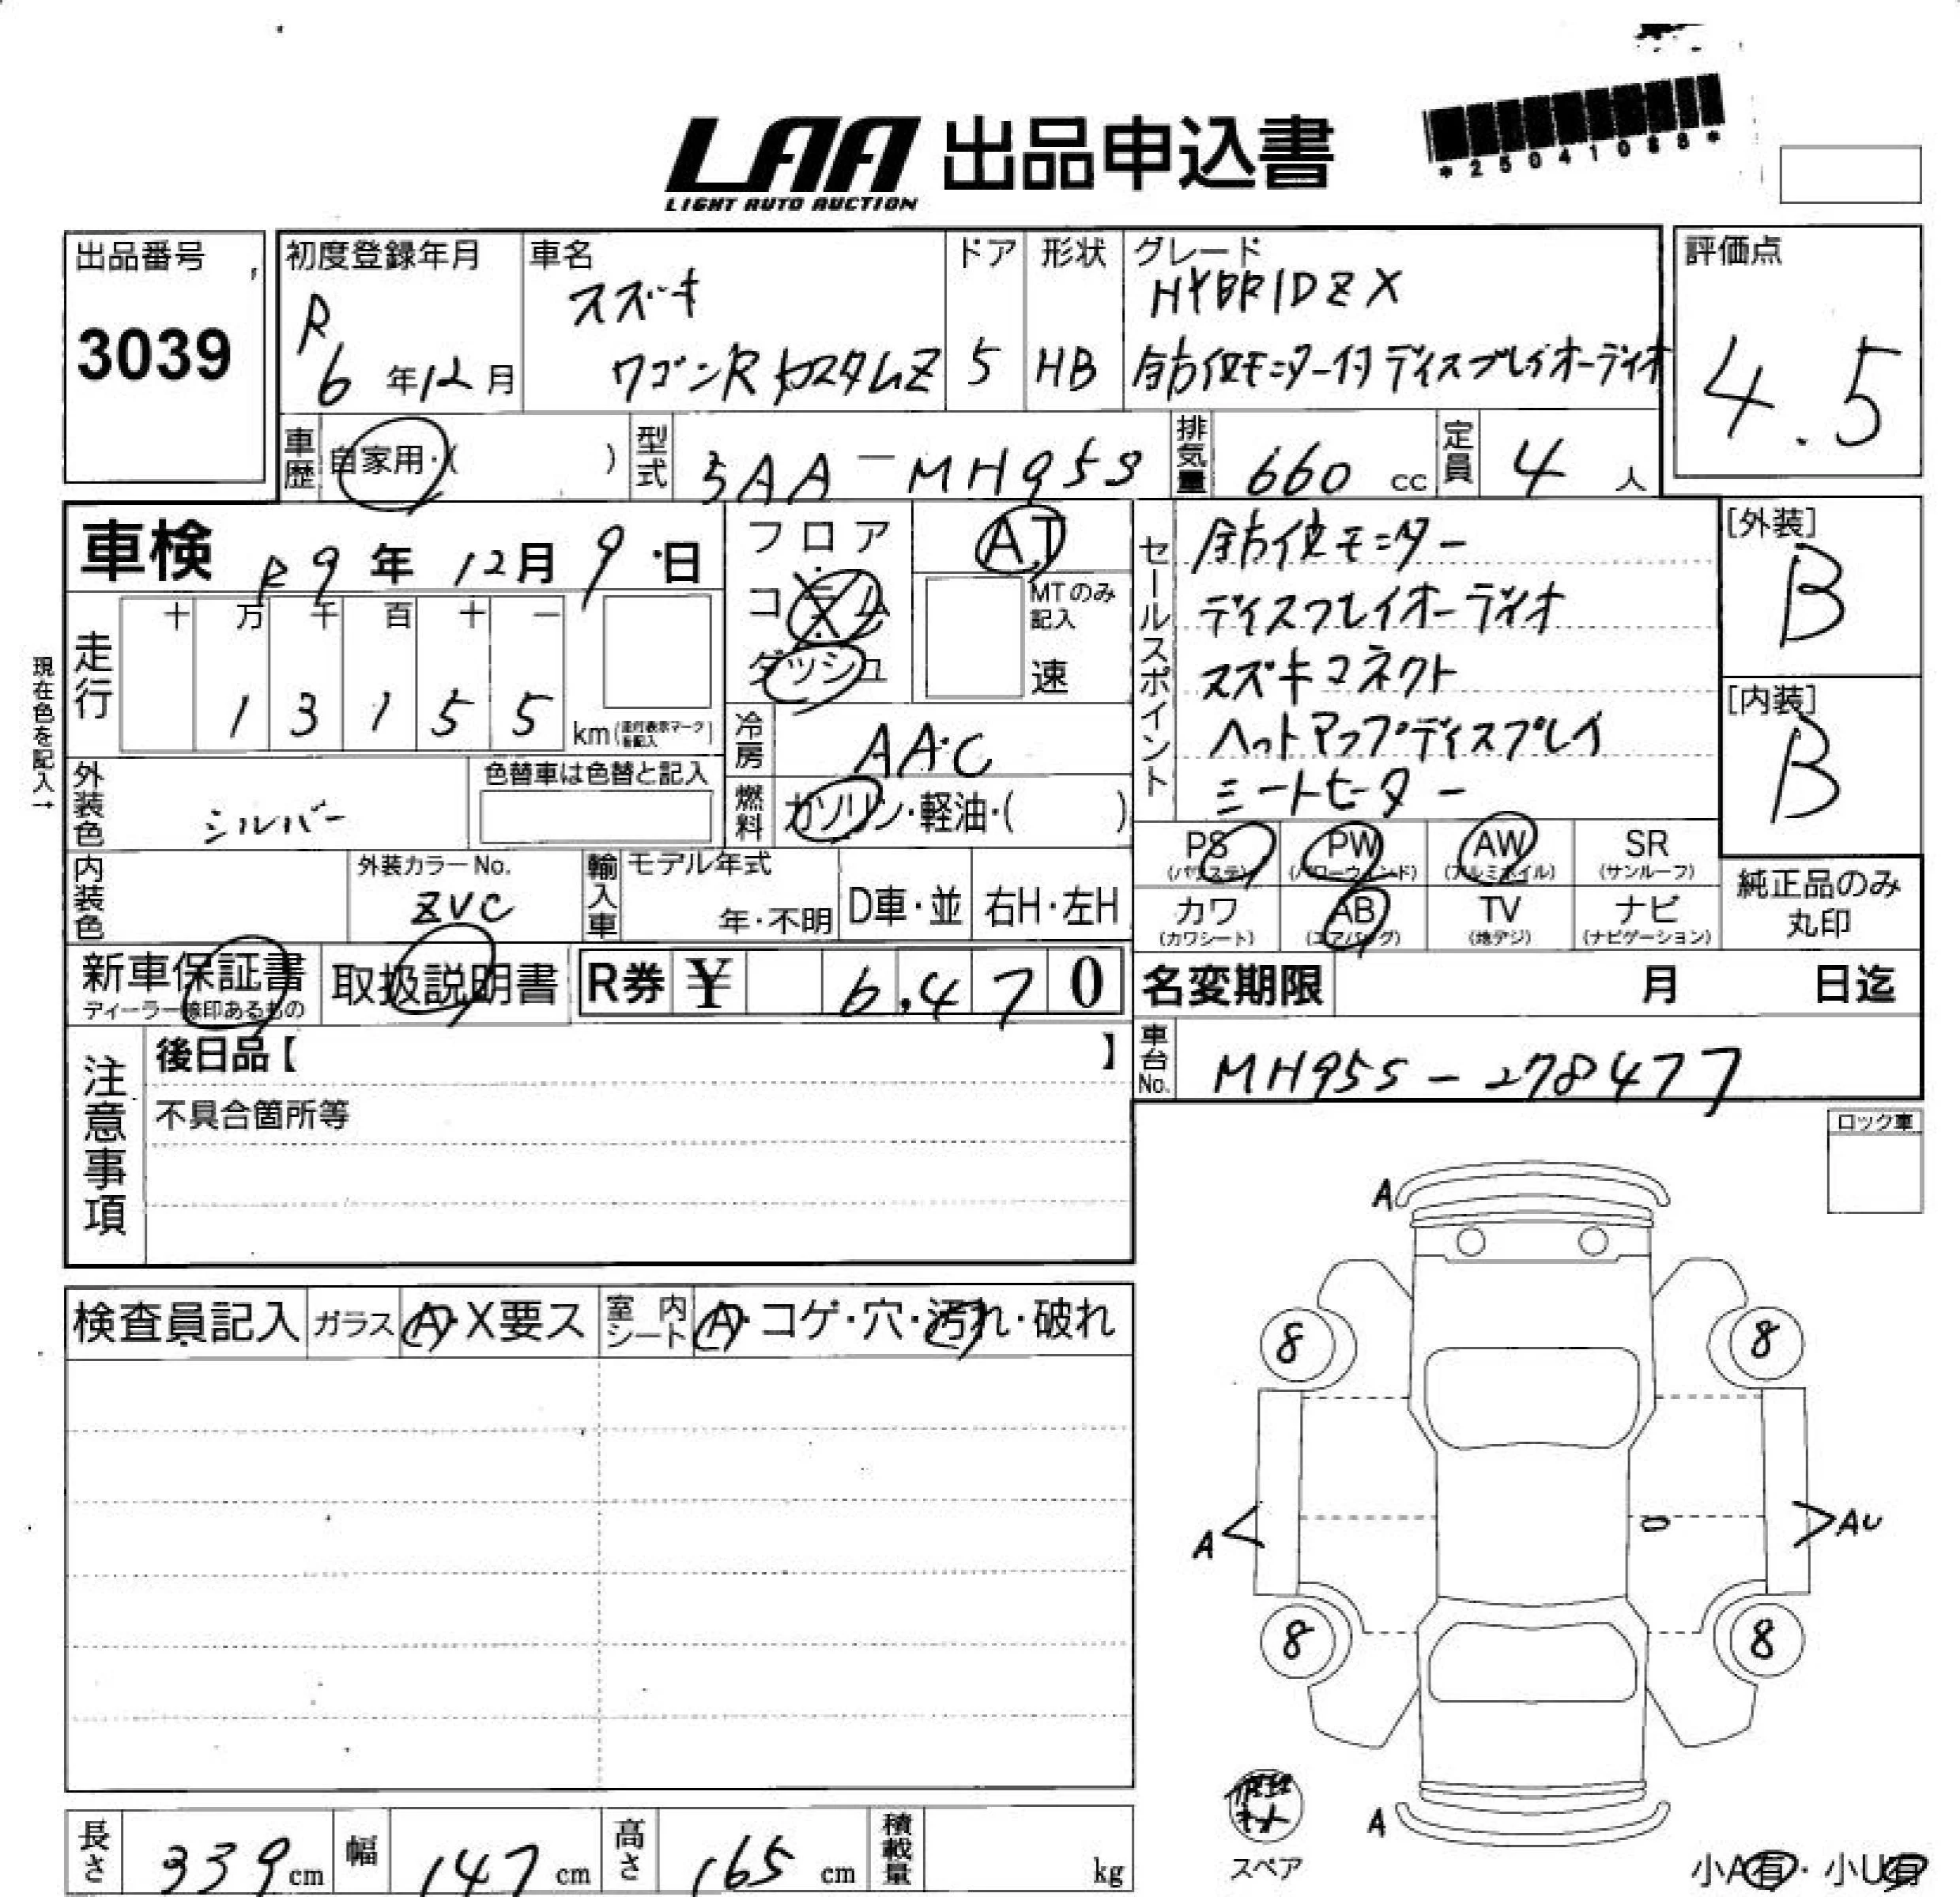 LAA 出品申込書
LIGHT AUTO AUCTION
*25041088*
出品番号
3039
初度登録年月
R
6 年 12 月
車名
スズキ
ワゴンRカスタムZ
ドア
5
形状
HB
グレード
HYBRID ZX
全方位モニター付ディスプレイオーディオ
評価点
4.5
車歴
自家用・( )
型式
5AA-MH95S
排気量
660 cc
定員
4 人
車検 R9 年 12 月 9 日
フロア
コラム
ダッシュ
AT
MTのみ記入
速
セールスポイント
全方位モニター
ディスプレイオーディオ
スズキコネクト
ヘットアップディスプレイ
シートヒーター
[外装]
B
[内装]
B
現在色を記入→
走行
十 万 千 百 十 一
1 3 1 5 5
km (走行表示マークを記入)
冷房
AAC
外装色
シルバー
色替車は色替と記入
燃料
ガソリン・軽油・( )
PS (パワステ)
PW (パワーウィンド)
AW (アルミホイル)
SR (サンルーフ)
カワ (カワシート)
AB (エアバッグ)
TV (地デジ)
ナビ (ナビゲーション)
純正品のみ
丸印
内装色
外装カラーNo.
ZVC
輸入車
モデル年式
年・不明
D車・並
右H・左H
新車保証書
ディーラー捺印あるもの
取扱説明書
R券 ¥ 6,470
名変期限 月 日迄
注意事項
後日品【 】
不具合箇所等
車台No.
MH95S-278477
ロック車
検査員記入
ガラス
A・X要ス
室内シート
A・コゲ・穴・汚れ・破れ
A
8
8
A
AU
8
8
A
スペア
小A有・小U有
長さ 339 cm
幅 147 cm
高さ 165 cm
積載量 kg